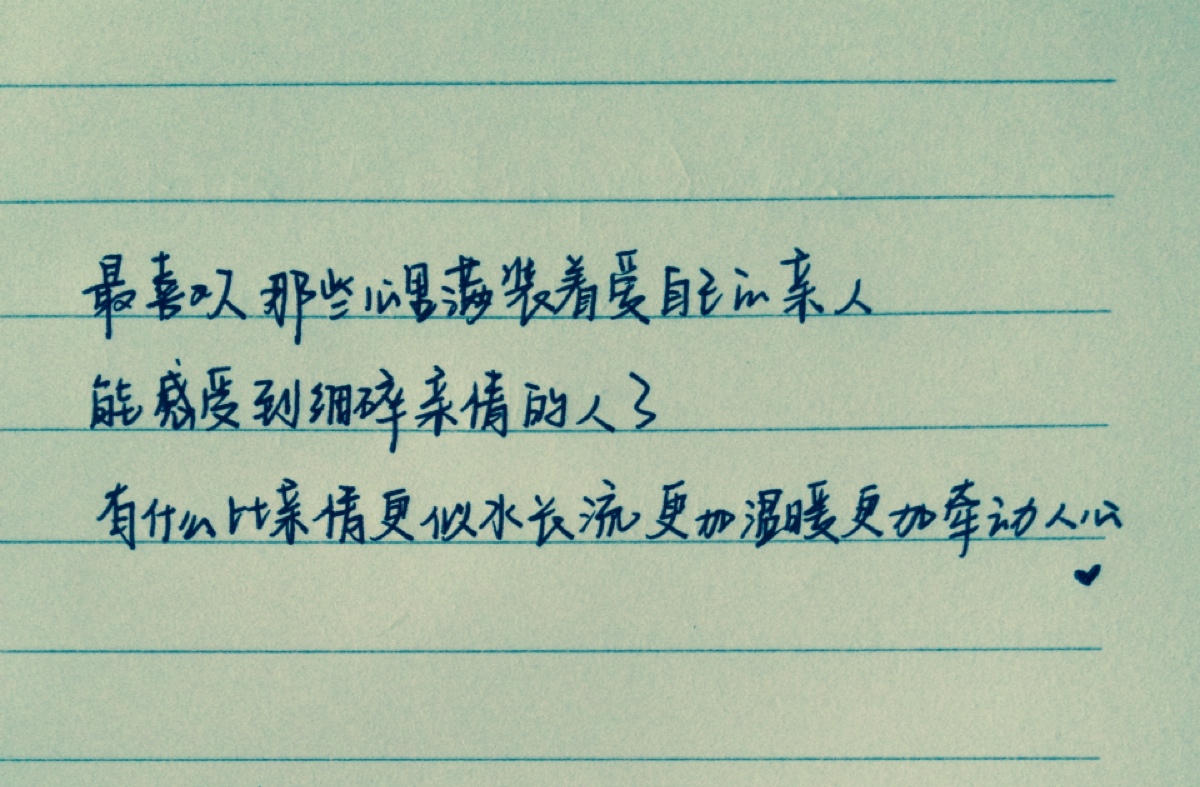 最喜欢那些心里满装着爱自己的亲人
能感受到细碎亲情的人了
有什么比亲情更似水长流更加温暖更加牵动人心